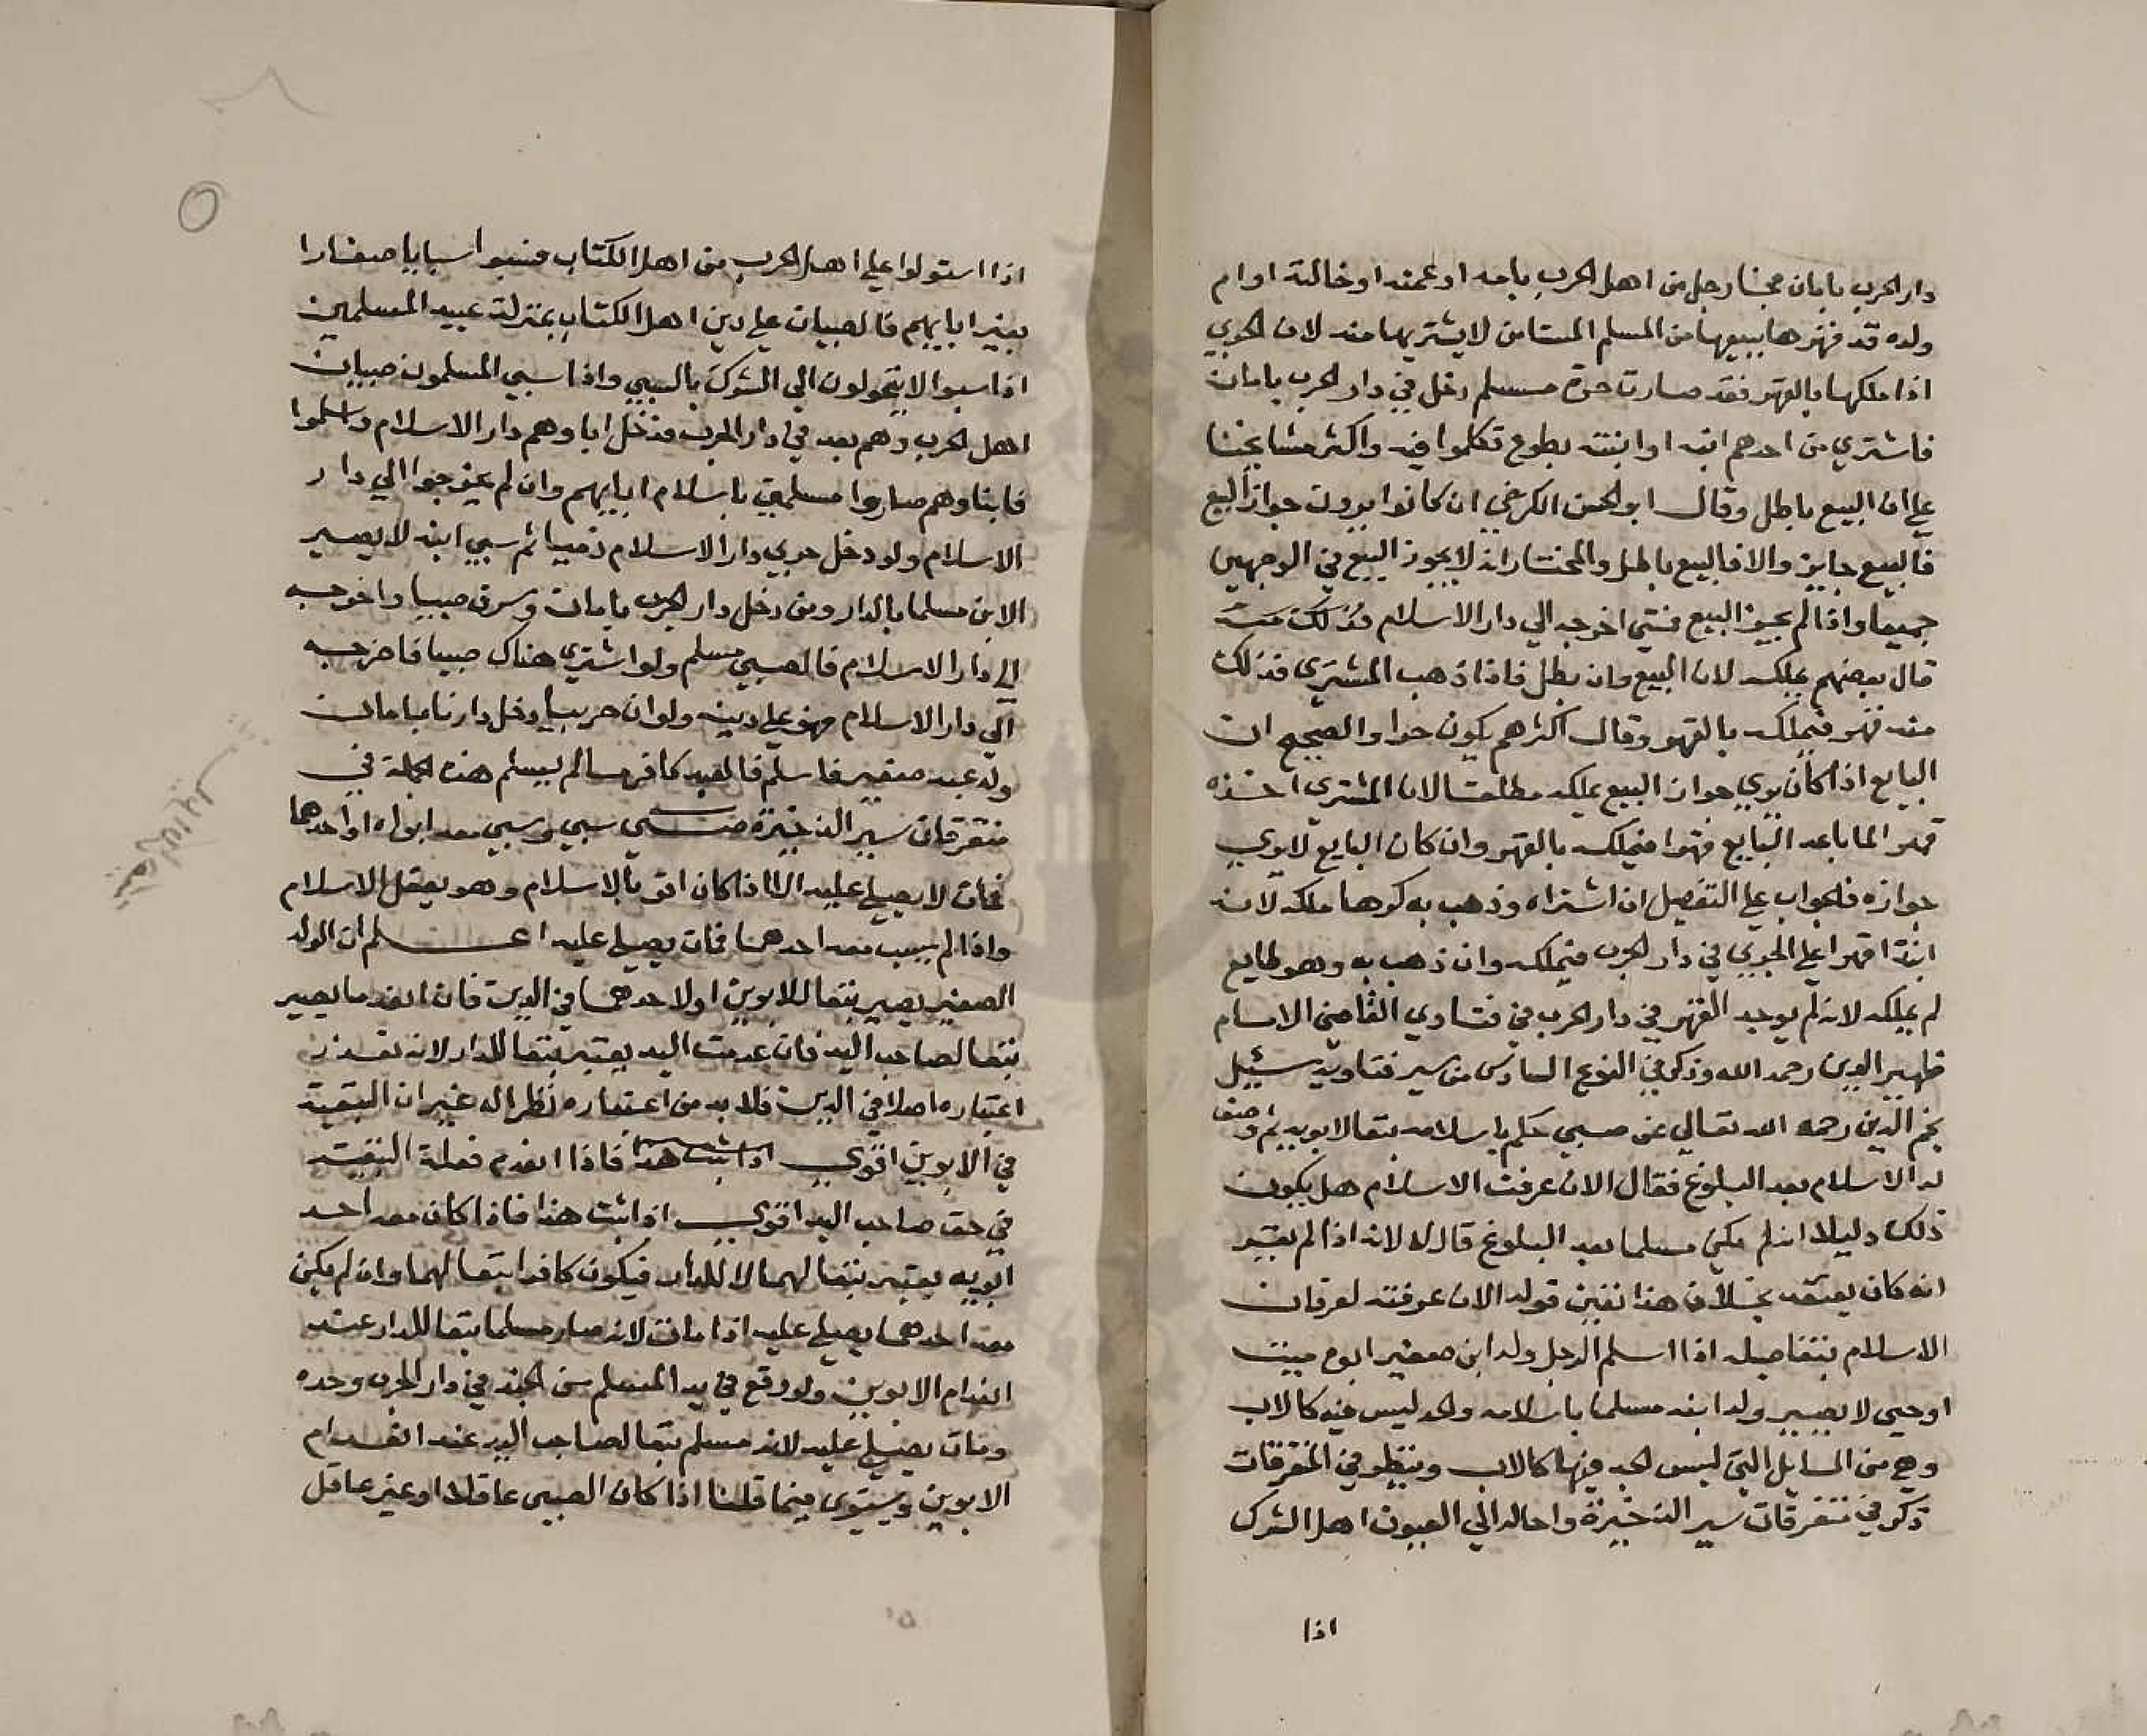 دار الحرب بامان فجا رجل من اهل الحرب بامه او عمته او خالته او ام
ولده قد قهرها يبيعها من المسلم المستامن لا يشتريها منه لان الحربي
اذا ملكها بالقهر فقد صارت حرة مسلم دخل في دار الحرب بامان
فاشتري من احدهم ابنه او ابنته بطوع تكلموا فيه واكثر مشايخنا
علي ان البيع باطل وقال ابو الحسن الكرخي ان كانوا يرون جواز البيع
فالبيع جايز والا فالبيع باطل والمختار انه لا يجوز البيع في الوجهين
جميعا واذا لم يجز البيع فمتي اخرجه الي دار الاسلام
قال بعضهم يملكه لان البيع وان بطل فاذا ذهب المشتري فذلك
منه قهر فيملكه بالقهر وقال اكثرهم يكون حرا والصحيح ان
البايع اذا كان يري جواز البيع يملكه مطلقا لان المشتري اخذه
قهرا لما باعه البايع فهو فيملكه بالقهر وان كان البايع لا يري
جوازه فالجواب علي التفصيل ان اشتراه وذهب به كرها ملكه لانه
ابتدا قهرا علي الحربي في دار الحرب فيملكه وان ذهب به وهو طايع
لم يملكه لانه لم يوجد القهر في دار الحرب في فتاوي القاضي الامام
ظهير الدين رحمه الله وذكر في النوع السادس من سير فتاويه سئيل
نجم الدين رحمه الله تعالي عن صبي حكم باسلامه تبعا لابويه ثم وصف
له الاسلام بعد البلوغ فقال الان عرفت الاسلام هل يكون
ذلك دليلا انه لم يكن مسلما بعد البلوغ قال لا لانه اذا لم يقر
انه كان يعتقد بخلاف هذا تعين قوله الان عرفته لعرفان
الاسلام بتفاصيله اذا اسلم الرجل وله ابن صغير ابوه ميت
او حي لا يصير ولد ابنه مسلما باسلامه والجد ليس فيه كالاب
وهي من المسايل التي ليس الجد فيها كالاب وينظر في المتفرقات
ذكر في متفرقات سير الذخيرة واحاله الي العيون اهل الشرك
اذا
اذا استولوا علي اهل الحرب من اهل الكتاب فسبوا سبايا صغارا
بغير ابايهم فالصبيان علي دين اهل الكتاب بمنزلة عبيد المسلمين
اذا سبوا لا يتحولون الي الشرك بالسبي واذا سبي المسلمون صبيان
اهل الحرب وهم بعد في دار الحرب فدخل اباوهم دار الاسلام واسلموا
فابناوهم صاروا مسلمين باسلام ابايهم وان لم يخرجوا الي دار
الاسلام ولو دخل حربي دار الاسلام ذميا ثم سبي ابنه لا يصير
الابن مسلما بالدار ومن دخل دار الحرب بامان وسرق صبيا واخرجه
الي دار الاسلام فالصبي مسلم ولو اشتري هناك صبيا فاخرجه
الي دار الاسلام فهو علي دينه ولو ان حربيا دخل دارنا بامان
وله عبد صغير فاسلم فالعبد كافر ما لم يسلم هذه الجملة في
متفرقات سير الذخيرة صبي سبي وسبي معه ابواه او احدهما
فمات لا يصلي عليه الا اذا كان اقر بالاسلام وهو يعقل الاسلام
واذا لم يسب معه احدهما فمات يصلي عليه اعلم ان الولد
الصغير يصير تبعا للابوين او لاحدهما في الدين فان انعدما يصير
تبعا لصاحب اليد فان عدمت اليد يعتبر تبعا للدار لانه تعذر
اعتباره اصلا في الدين فلا بد من اعتباره نظرا له غير ان التبعية
في الابوين اقوي اذا ثبت هذا فاذا انعدم فعلة التبعية
في حق صاحب اليد اقوي اذا ثبت هذا فاذا كان معه احد
ابويه يعتبر تبعا لهما لا للدار فيكون كافرا تبعا لهما وان لم يكن
معه احدهما يصلي عليه اذا مات لانه صار مسلما تبعا للدار عند
انعدام الابوين ولو وقع في يد المسلم من الجند في دار الحرب وحده
ومات يصلي عليه لانه مسلم تبعا لصاحب اليد عند انعدام
الابوين ويستوي فيما قلنا اذا كان الصبي عاقلا او غير عاقل